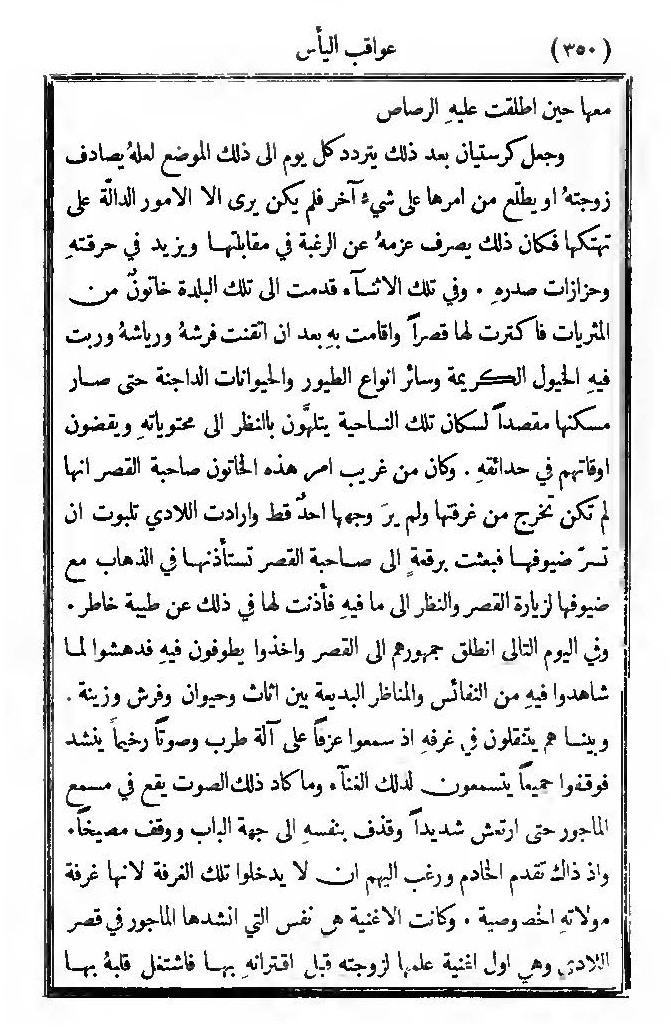 (٣٥٠) عواقب اليأس
معها حين اطلقت عليهِ الرصاص
وجعل كرستيان بعد ذلك يتردد كل يوم الى ذلك الموضع لعلهُ يصادف
زوجتهُ او يطّلع من امرها على شيءٍ آخر فلم يكن يرى الا الامور الدالّة على
تهتكها فكان ذلك يصرف عزمهُ عن الرغبة في مقابلتها ويزيد في حرقتهِ
وحزازات صدرهِ ٠ وفي تلك الاثنآء قدمت الى تلك البلدة خاتونٌ من
المثريات فاكترت لها قصراً واقامت بهِ بعد ان اتقنت فرشهُ ورياشهُ وربت
فيهِ الخيول الكريمة وسائر انواع الطيور والحيوانات الداجنة حتى صار
مسكنها مقصداً لسكان تلك الناحية يتلهَّون بالنظر الى محتوياتهِ ويقضون
اوقاتهم في حدائقهِ . وكان من غريب امر هذه الخاتون صاحبة القصر انها
لم تكن تخرج من غرفتها ولم يرَ وجهها احدٌ قط وارادت اللادي تلبوت ان
تسرّ ضيوفها فبعثت برقعةٍ الى صاحبة القصر تستأذنها في الذهاب مع
ضيوفها لزيارة القصر والنظر الى ما فيهِ فأذنت لها في ذلك عن طيبة خاطر ٠
وفي اليوم التالى انطلق جمهورهم الى القصر واخذوا يطوفون فيهِ فدهشوا لما
شاهدوا فيهِ من النفائس والمناظر البديعة بين اثاث وحيوان وفرش وزينة .
وبينما هم يتنقلون في غرفهِ اذ سمعوا عزفاً على آلة طرب وصوتاً رخيماً ينشد
فوقفوا جميعاً يتسمعون لذلك الغنآء وما كاد ذلك الصوت يقع في مسمع
الماجور حتى ارتعش شديداً وقذف بنفسهِ الى جهة الباب ووقف مصيخاً٠
واذ ذاك تقدم الخادم ورغب اليهم ان لا يدخلوا تلك الغرفة لانها غرفة
مولاتهِ الخصوصية ٠ وكانت الاغنية هي نفس التي انشدها الماجور في قصر
اللادي وهي اول اغنية علمها لزوجته قبل اقترانهِ بها فاشتغل قلبهُ بها